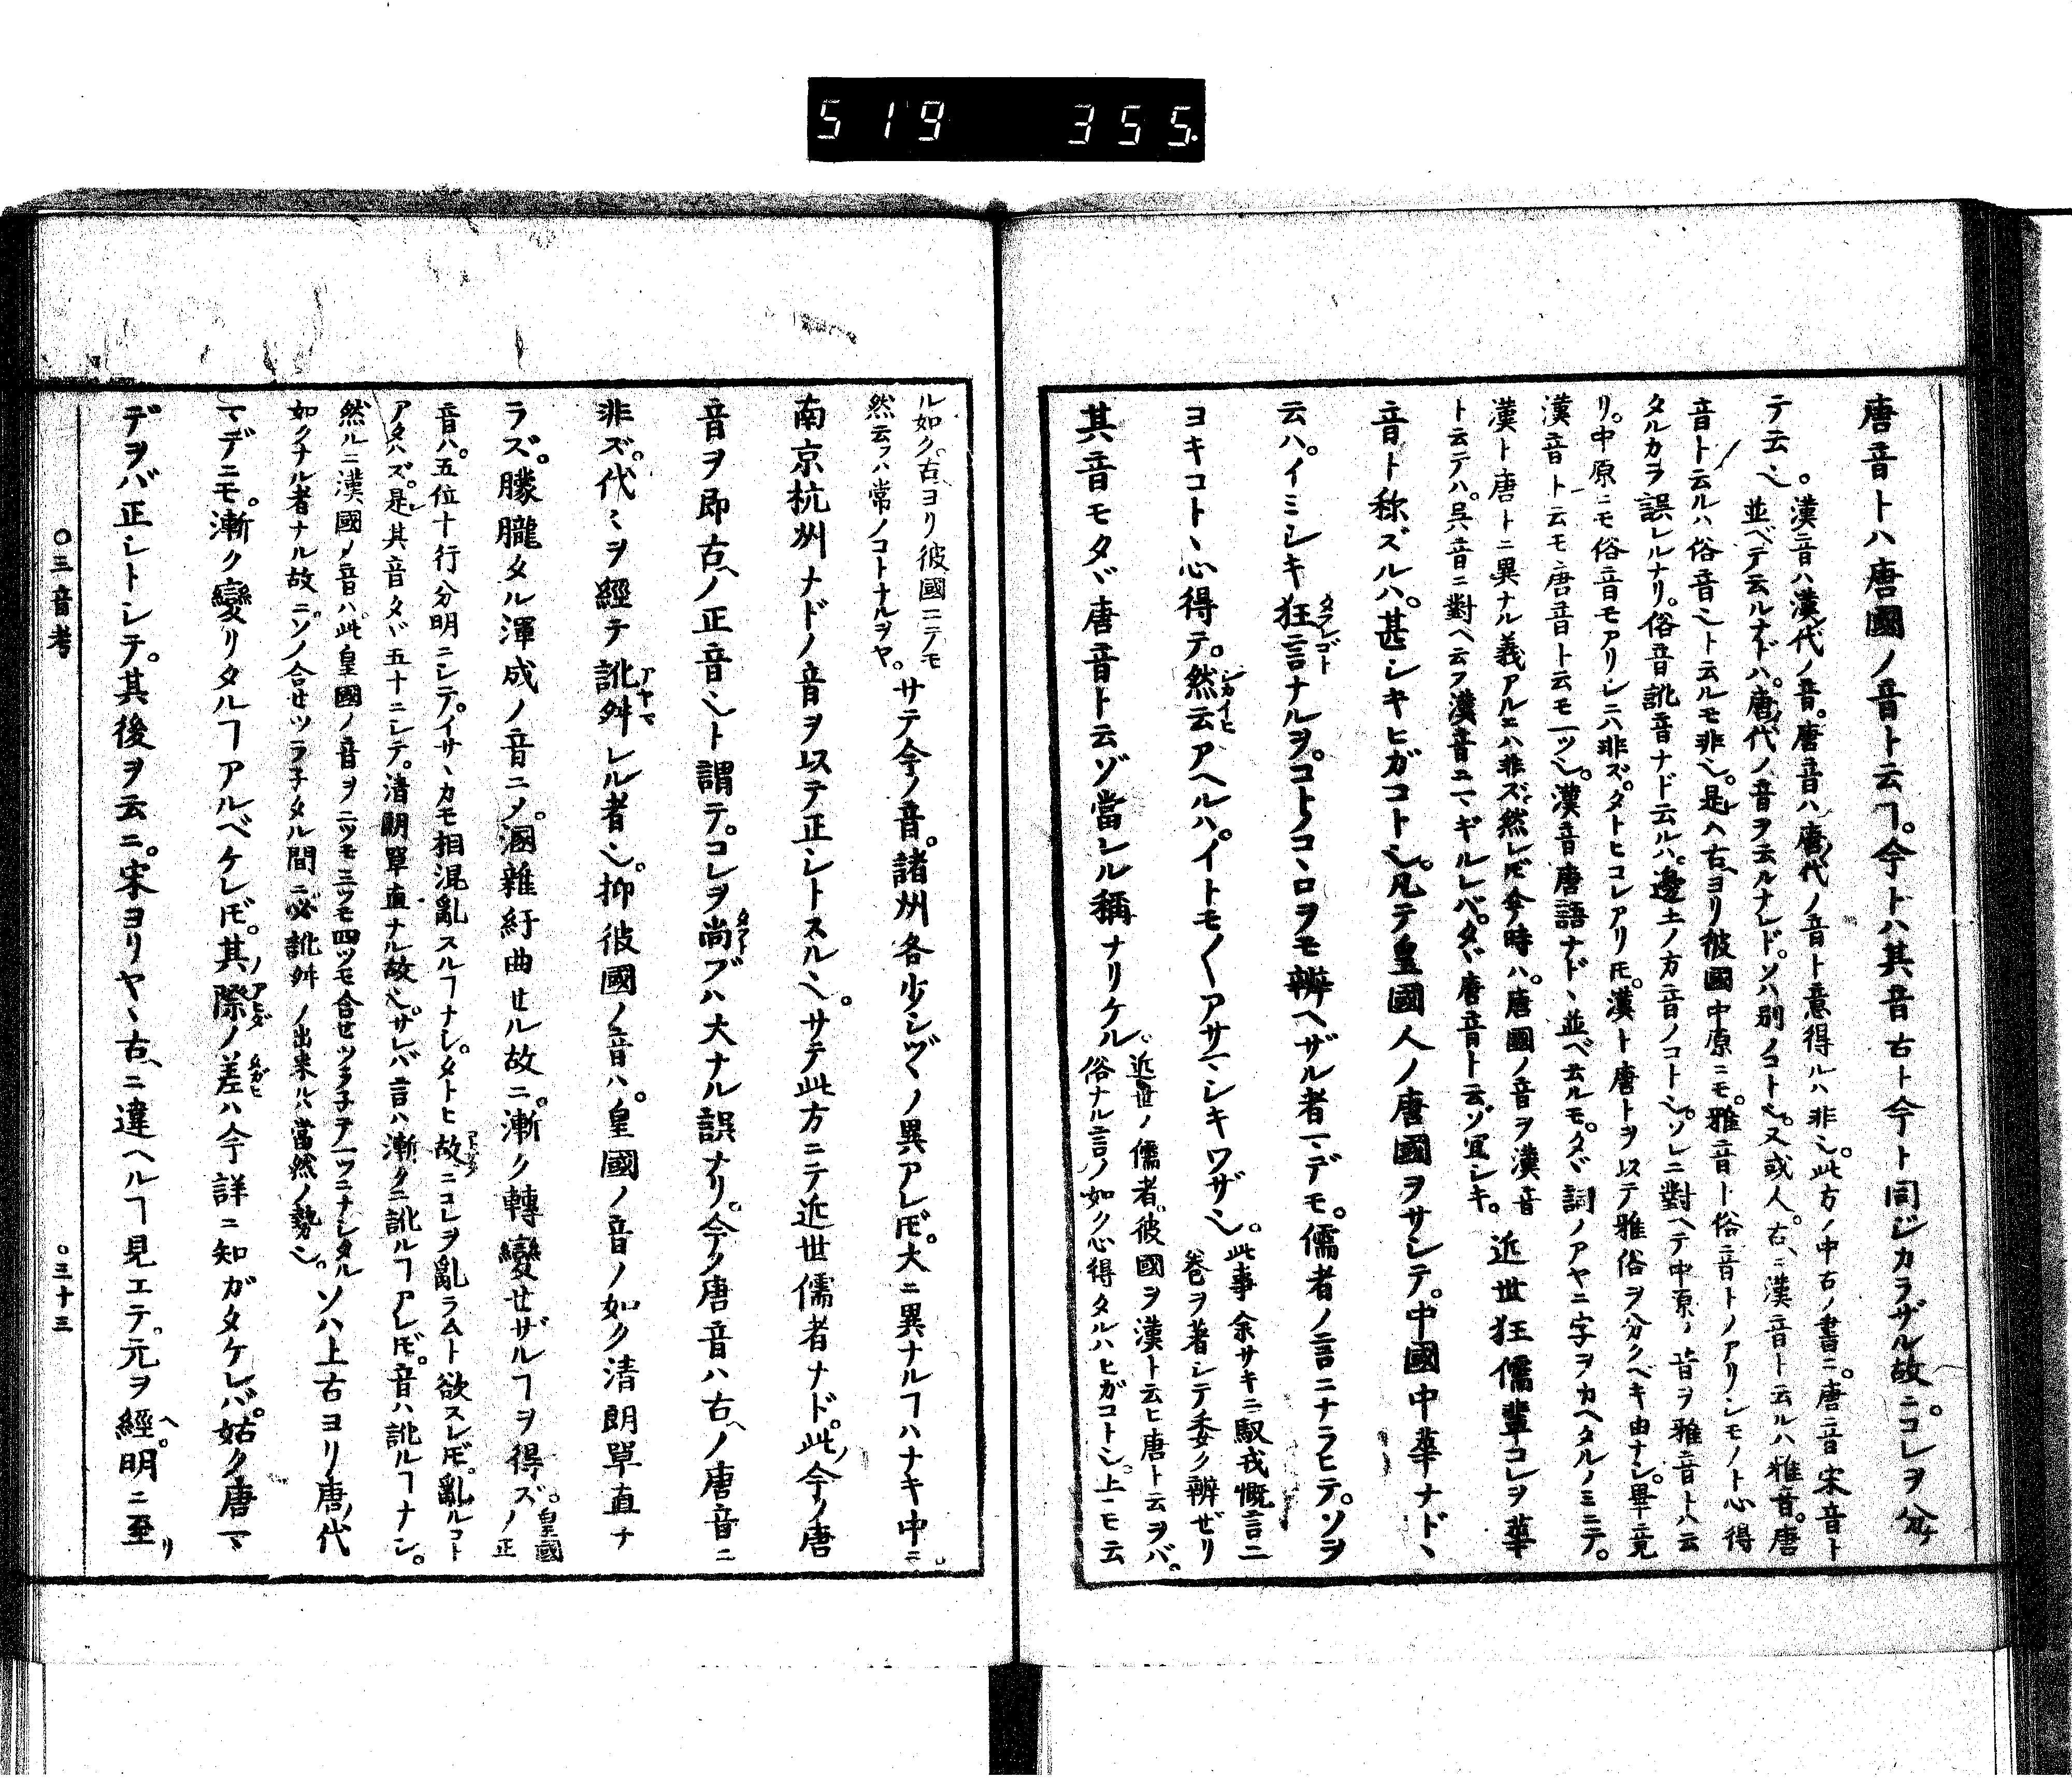 519 355.
唐音トハ唐國ノ音ト云ヿ。今トハ其音古ト今ト同ジカラザル故ニ。コレヲ分チ
テ云也。漢音ハ漢代ノ音。唐音ハ唐代ノ音ト意得ルハ非也。此方ノ中古ノ書ニ。唐音宋音ト
並ベテ云ルナドハ。唐代ノ音ヲ云ルナレド。ソハ別ノコト也。又或人。古ニ漢音ト云ルハ雅音。唐
音ト云ルハ俗音也ト云ルモ非也。是ハ古ヨリ彼國中原ニモ。雅音ト俗音トノアリシモノト心得
タルカラ誤レルナリ。俗音訛音ナド云ルハ。邊土ノ方音ノコト也。ソレニ對ヘテ中原ノ音ヲ雅音トハ云
リ。中原ニモ俗音モアリシニハ非ズ。タトヒコレアリ𪜈。漢ト唐トヲ以テ雅俗ヲ分クベキ由ナシ。畢竟
漢音ト云モ唐音ト云モ一ツ也。漢音唐語ナドヽ並ベ云ルモ。タヾ詞ノアヤニ字ヲカヘタルノミニテ。
漢ト唐トニ異ナル義アルニハ非ズ。然レ𪜈今時ハ。唐國ノ音ヲ漢音
ト云テハ。呉音ニ對ヘ云フ漢音ニマギルレバ。タヾ唐音ト云ゾ宜シキ。近世狂儒輩コレヲ華
音ト称ズルハ。甚シキヒガコト也。凡テ皇國人ノ唐國ヲサシテ。中國中華ナドヽ
云ハ。イミシキ狂言ナルヲ。コトノコヽロヲモ辨ヘザル者マデモ。儒者ノ言ニナラヒテ。ソヲ
ヨキコトヽ心得テ。然云アヘルハ。イトモ〱アサマシキワザ也。此事余サキニ馭戎慨言二
巻ヲ著シテ委ク辨ゼリ
其音モタヾ唐音ト云ゾ當レル稱ナリケル。近世ノ儒者。彼國ヲ漢ト云ヒ唐ト云ヲバ。
俗ナル言ノ如ク心得タルハヒガコト也。上ニモ云
ル如ク。古ヨリ彼國ニテモ
然云フハ常ノコトナルヲヤ。サテ今ノ音。諸州各少シヅヽノ異アレ𪜈。大ニ異ナルヿハナキ中ニ
南京杭州ナドノ音ヲ以テ正シトスル也。サテ此方ニテ近世儒者ナド。此今ノ唐
音ヲ即古ノ正音也ト謂テ。コレヲ尚ブハ大ナル誤ナリ。今ノ唐音ハ古ノ唐音ニ
非ズ。代々ヲ經テ訛舛レル者也。抑彼國ノ音ハ。皇國ノ音ノ如ク清朗單直ナ
ラズ。朦朧タル渾成ノ音ニノ。溷雜紆曲セル故ニ。漸ク轉變セザルヿヲ得ズ。皇國ノ正
音ハ。五位十行分明ニシテ。イサヽカモ相混亂スルヿナシ。タトヒ故ニコレヲ亂ラムト欲スレ𪜈。亂ルコト
アタハズ。是其音タヾ五十ニシテ。清朗單直ナル故也。サレバ言ハ漸クニ訛ルヿアレ𪜈。音ハ訛ルヿナシ。
然ルニ漢國ノ音ハ。此皇國ノ音ヲ二ツモ三ツモ四ツモ合セツラ子テ一ツニナシタル
如クナル者ナル故ニ。ソノ合セツラ子タル間ニ必訛舛ノ出來ルハ當然ノ勢也。ソハ上古ヨリ唐ノ代
マデニモ。漸ク變リタルヿアルベケレ𪜈。其際ノ差ハ今詳ニ知ガタケレバ。姑ク唐マ
デヲバ正シトシテ。其後ヲ云ニ。宋ヨリヤヽ古ニ違ヘルヿ見エテ。元ヲ經。明ニ至リ
〇三音考
〇三十三